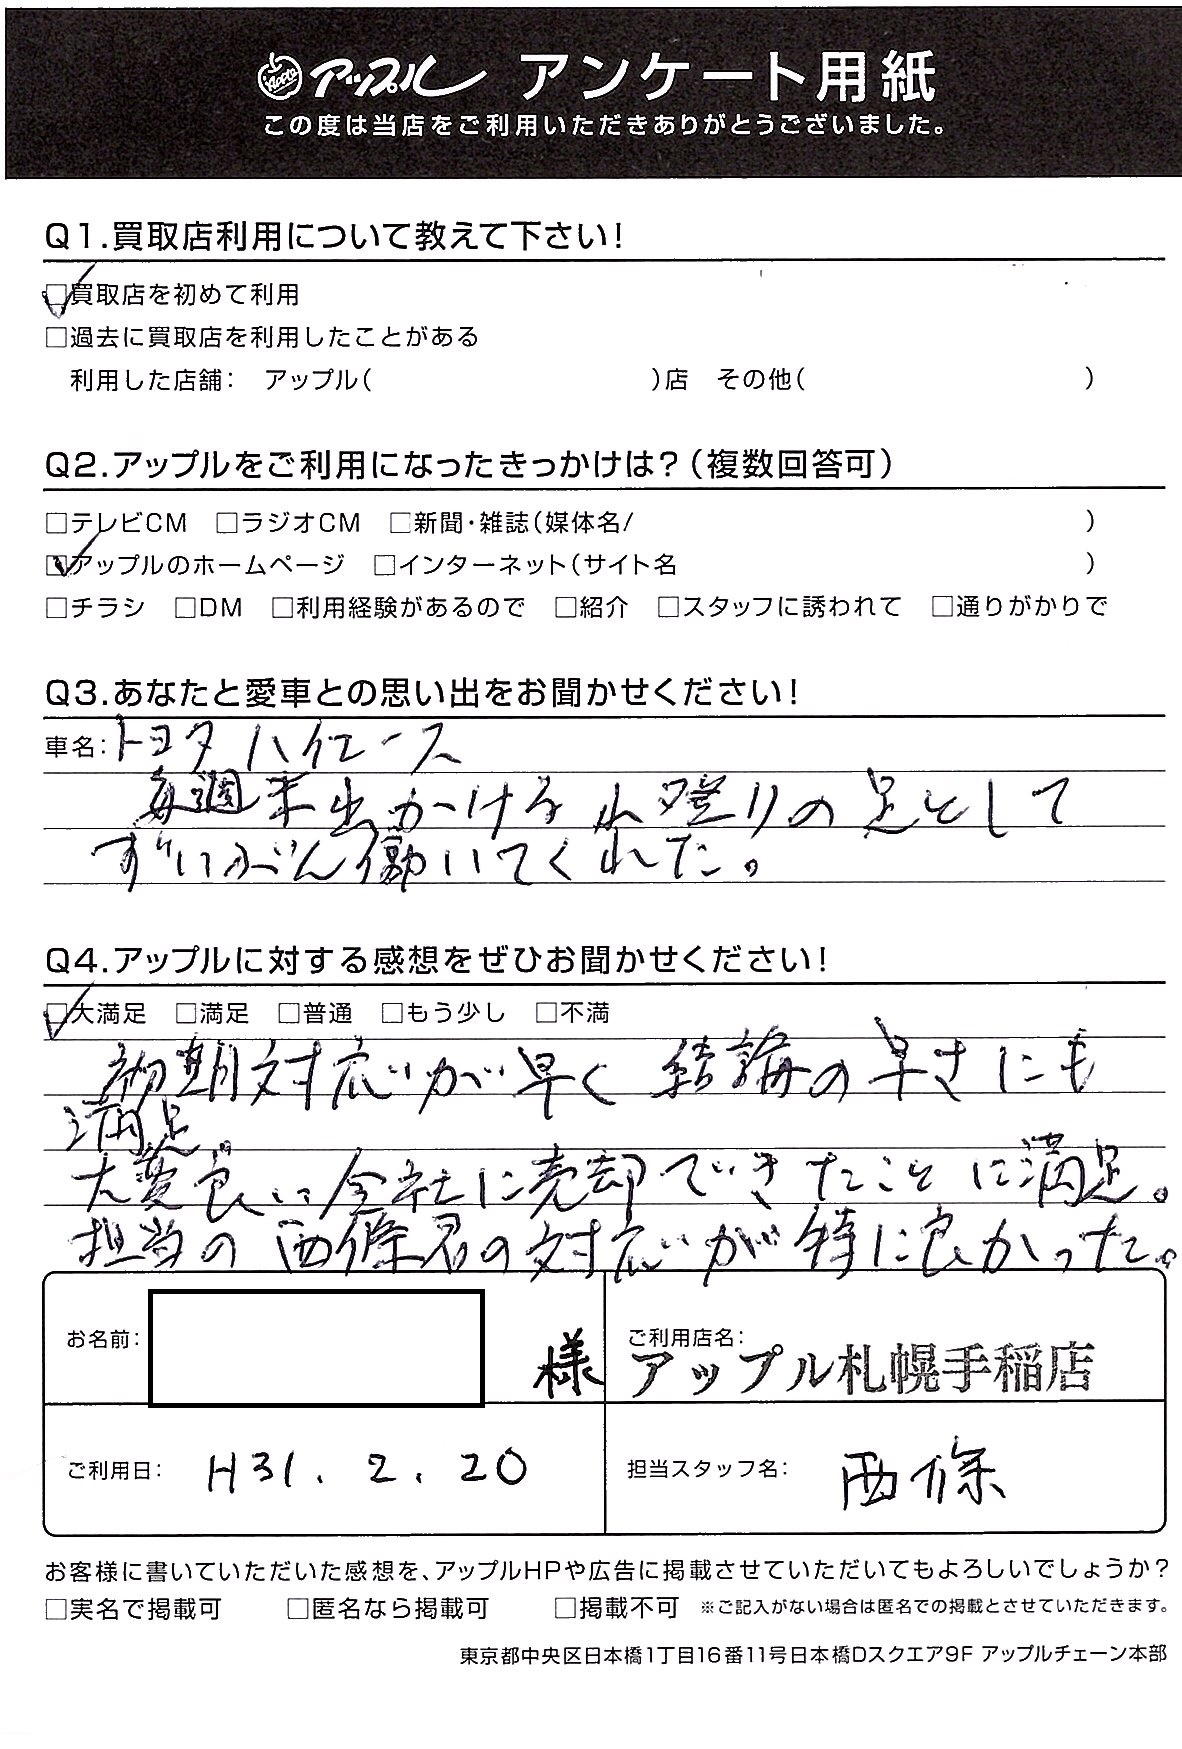 アップル アンケート用紙
この度は当店をご利用いただきありがとうございました。
Q1.買取店利用について教えて下さい！
☑買取店を初めて利用
□過去に買取店を利用したことがある
利用した店舗： アップル（ ）店 その他（ ）
Q2.アップルをご利用になったきっかけは？（複数回答可）
□テレビCM □ラジオCM □新聞・雑誌（媒体名/ ）
☑アップルのホームページ □インターネット（サイト名 ）
□チラシ □DM □利用経験があるので □紹介 □スタッフに誘われて □通りがかりで
Q3.あなたと愛車との思い出をお聞かせください！
車名：トヨタ ハイエース
毎週末出かける山登りの足として
ずいぶん働いてくれた。
Q4.アップルに対する感想をぜひお聞かせください！
☑大満足 □満足 □普通 □もう少し □不満
初期対応が早く 結論の早さにも
満足
大変良い会社に売却できたことに満足。
担当の西條君の対応が特に良かった。
お名前： 様
ご利用店名：
アップル札幌手稲店
ご利用日： H31.2.20
担当スタッフ名： 西條
お客様に書いていただいた感想を、アップルHPや広告に掲載させていただいてもよろしいでしょうか？
□実名で掲載可 □匿名なら掲載可 □掲載不可 ※ご記入がない場合は匿名での掲載とさせていただきます。
東京都中央区日本橋1丁目16番11号日本橋Dスクエア9F アップルチェーン本部